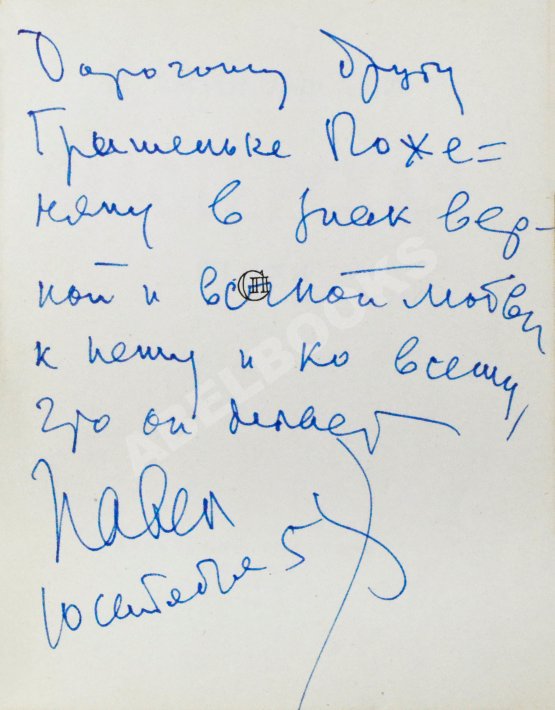 Дорогому другу
Гришеньке Поже=
няну в знак вер-
ной и вечной любви
к нему и ко всему,
что он делает
Павел
10 сентября 57
ABELBOOKS